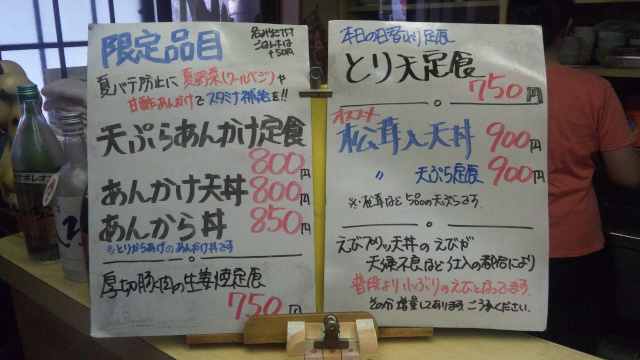 限定品目
ごはん大は
+50円
夏バテ防止に 夏野菜(クールベジ)や
甘酢あんかけでスタミナ補給を!!
天ぷらあんかけ定食
800円
あんかけ天丼 800円
あんから丼 850円
※とりからあげのあんかけ丼です
厚切豚肉の生姜焼定食
750円
本日の日替り定食
とり天定食
750円
オススメ
松茸入天丼 900円
〃 天ぷら定食 900円
※松茸ほど5品の天ぷらです
えびプリッ天丼のえびが
天候不良ほど仕入の都合により
普段より小ぶりのえびとなってます。
その分増量してあります。ご了承ください。